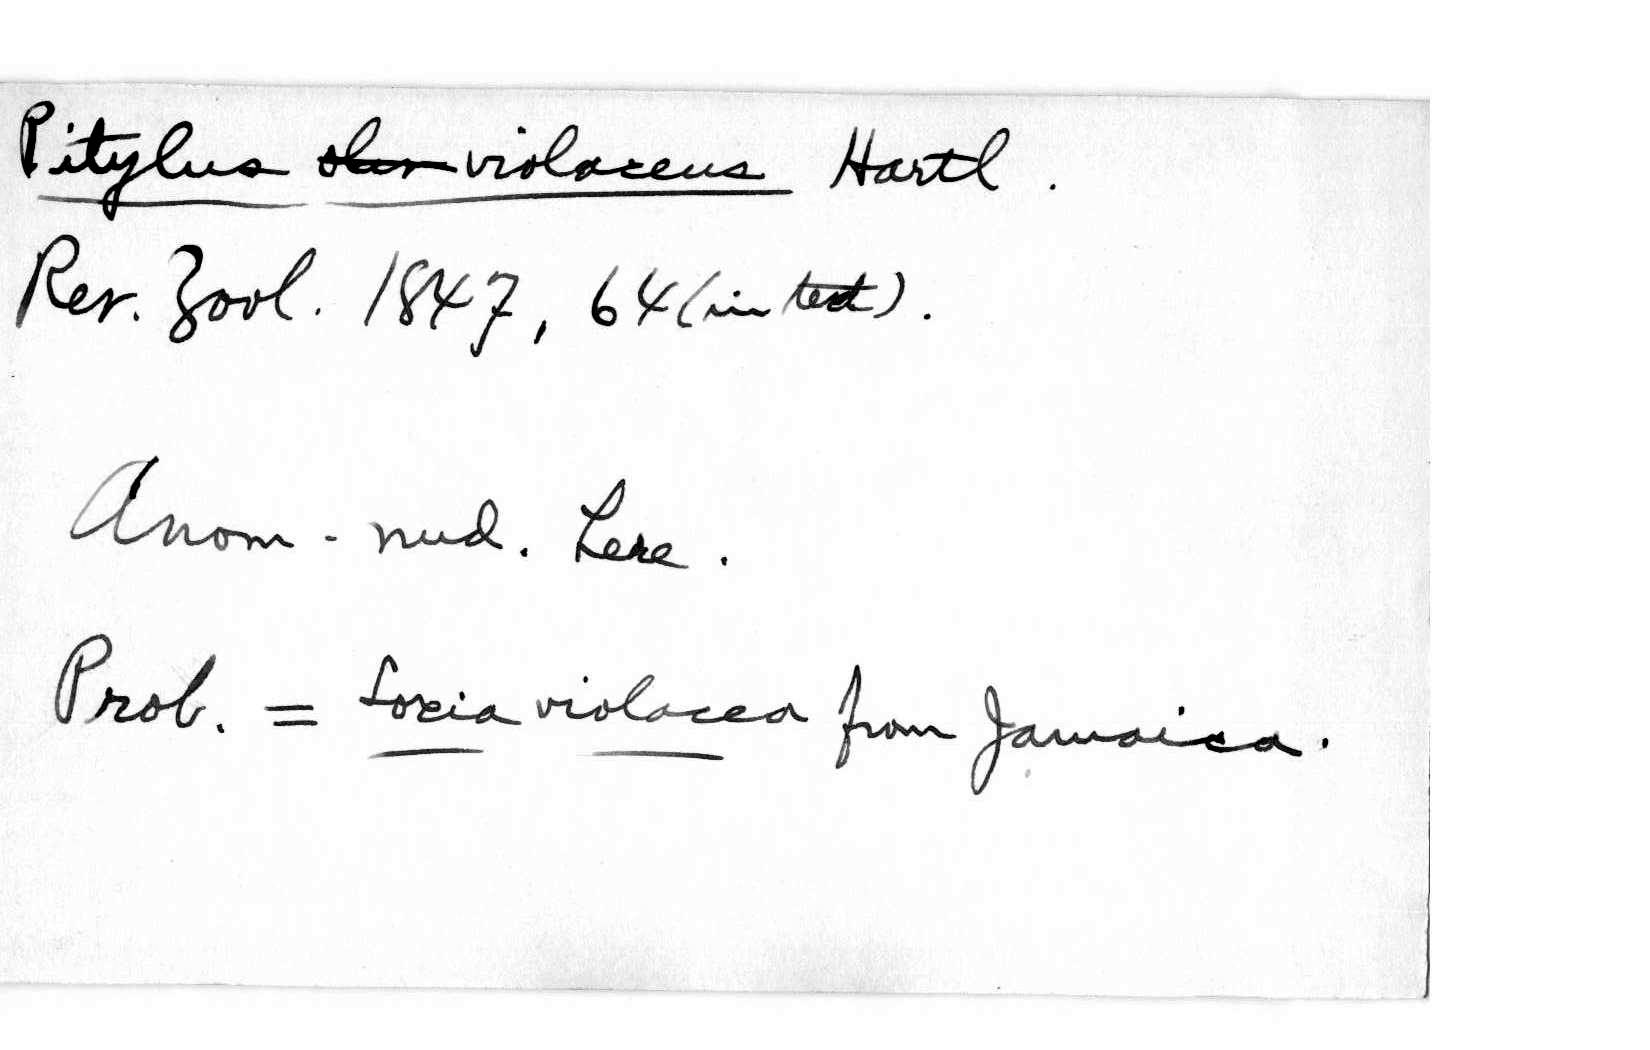 Pitylus violaceus Hartl.
Rev. Zool. 1847, 64 (in text).
A nom-nud. here.
Prob. = Loxia violacea from Jamaica.